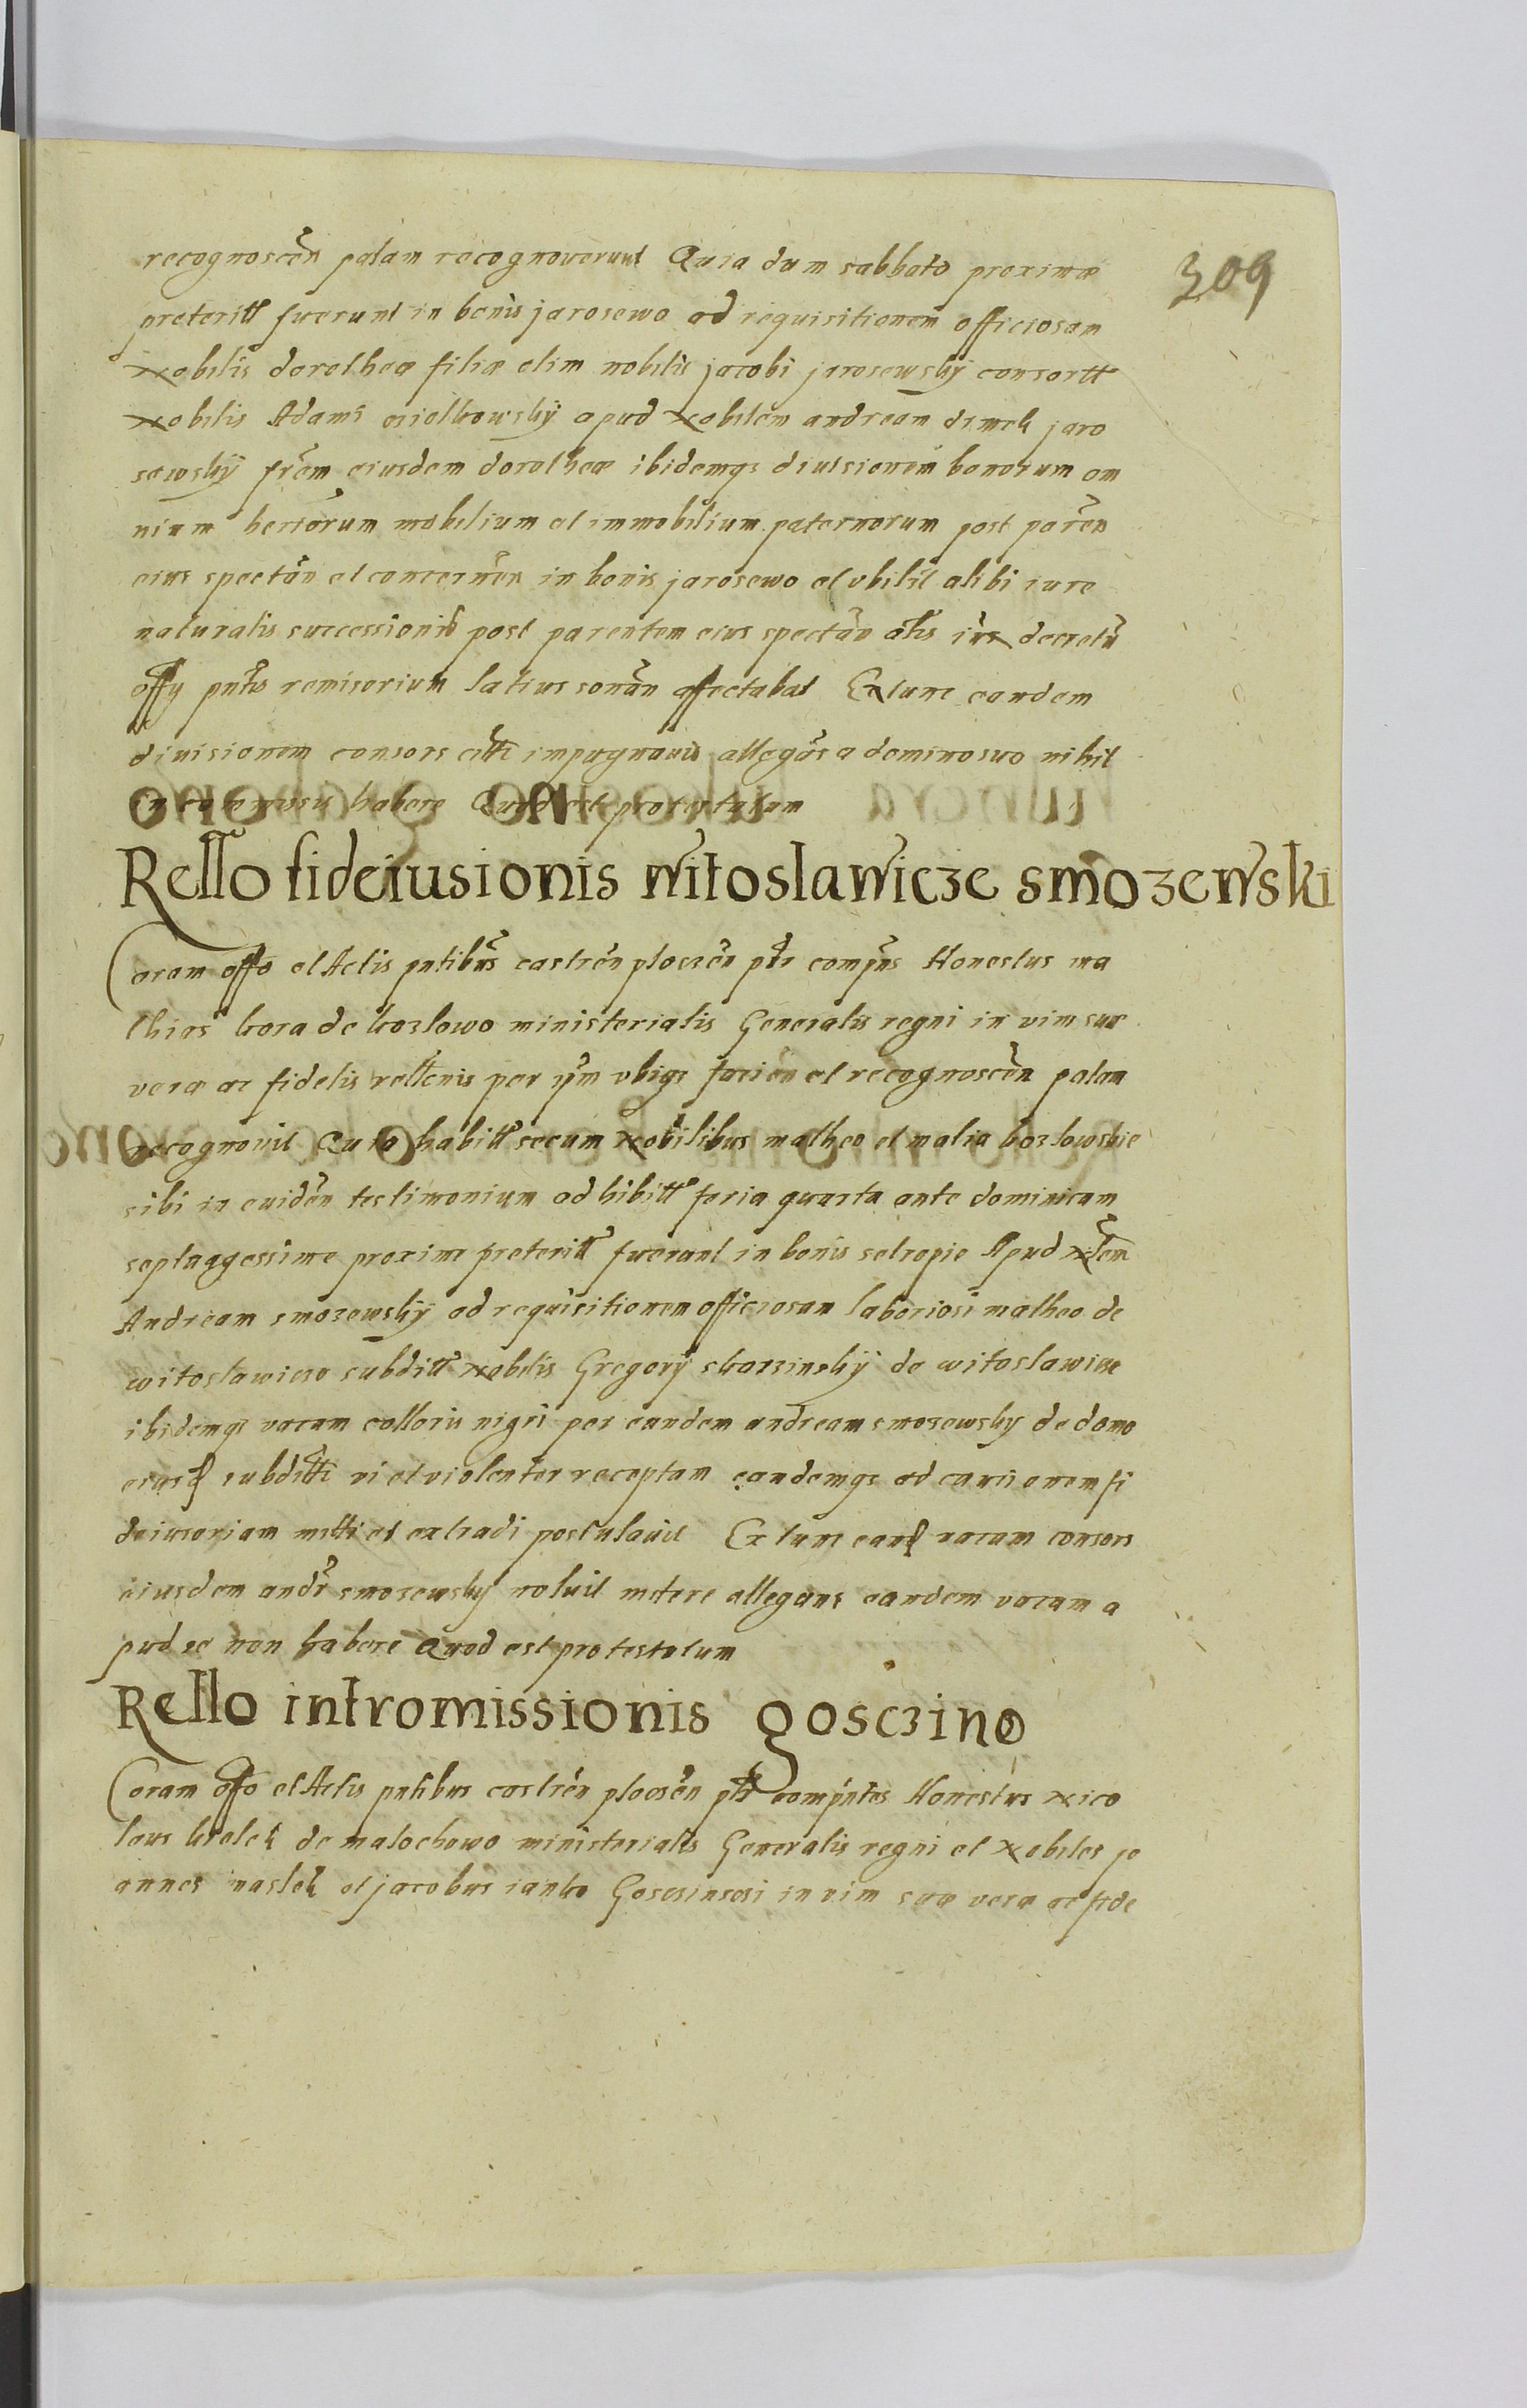 309
recognoscen palam recognoverunt Quia dum sabbato proximæ
preteritt fuerunt in bonis jarosewo ad requisitionem officiosam
Nobilis dorotheæ filiæ olim nobilis jacobi jarosewskÿ consortt
Nobilis Adami osiolkowskÿ apud Nobilem andream dimek jaro
sewskÿ frem eiusdem dorotheæ ibidemqз diuisionem bonorum om
nium heriorum mobilium et immobilium paternorum post paren
eius spectan et concernen in bonis jarosewo et vbilit alibi iure
naturalis successionis post parentem eius spectan als iux decretu
offy pntis remisorium latius sonan affectabat Extunc eandem
diuisionem consors citti impugnauit allegas a domino suo nihil
in commissis habere Quod est protestatum
Rello fideiusionis witoslawicze smozewski
Coram offo et Actis pntibus castren ploczen ptr compns Honestus ma
thias kora de kozlowo ministerialis Generalis regni in vim suæ
veræ ac fidelis rellenis per ipm vbiqз facien et recognoscen palam
recognouit Quia habitt secum Nobilibus matheo et malia kozlowskie
sibi in euiden testimonium adhibitt feria quarta ante dominicam
septuagessime proxime preteritt fuerunt in bonis setropie Apud Nlem
Andream smozewskÿ ad requisitionem officiosam laboriosi matheo de
witoslawicze subditt Nobilis Gregorÿ skarzinskÿ de witoslawicze
ibidemqз vacam colloris nigri per eundem andream smozewsky de domo
eiusd subditti vi et violenter receptam eandemqз ad caucionem fi
deiusoriam mitti et extradi postulauit Ex tunc eand vacam consors
eiusdem andr smozewskÿ noluit mitere allegans eandem vacam a
pud se non habere Quod est protestatum
Rello intromissionis gosczino
Coram offo et Actis pntibus castren ploczen ptr compntes Honestus Nico
laus krolek de malochowo ministerialis Generalis regni et Nobiles jo
annes maslek et jacobus ianko Gosczinsczi in vim suæ veræ ac fide